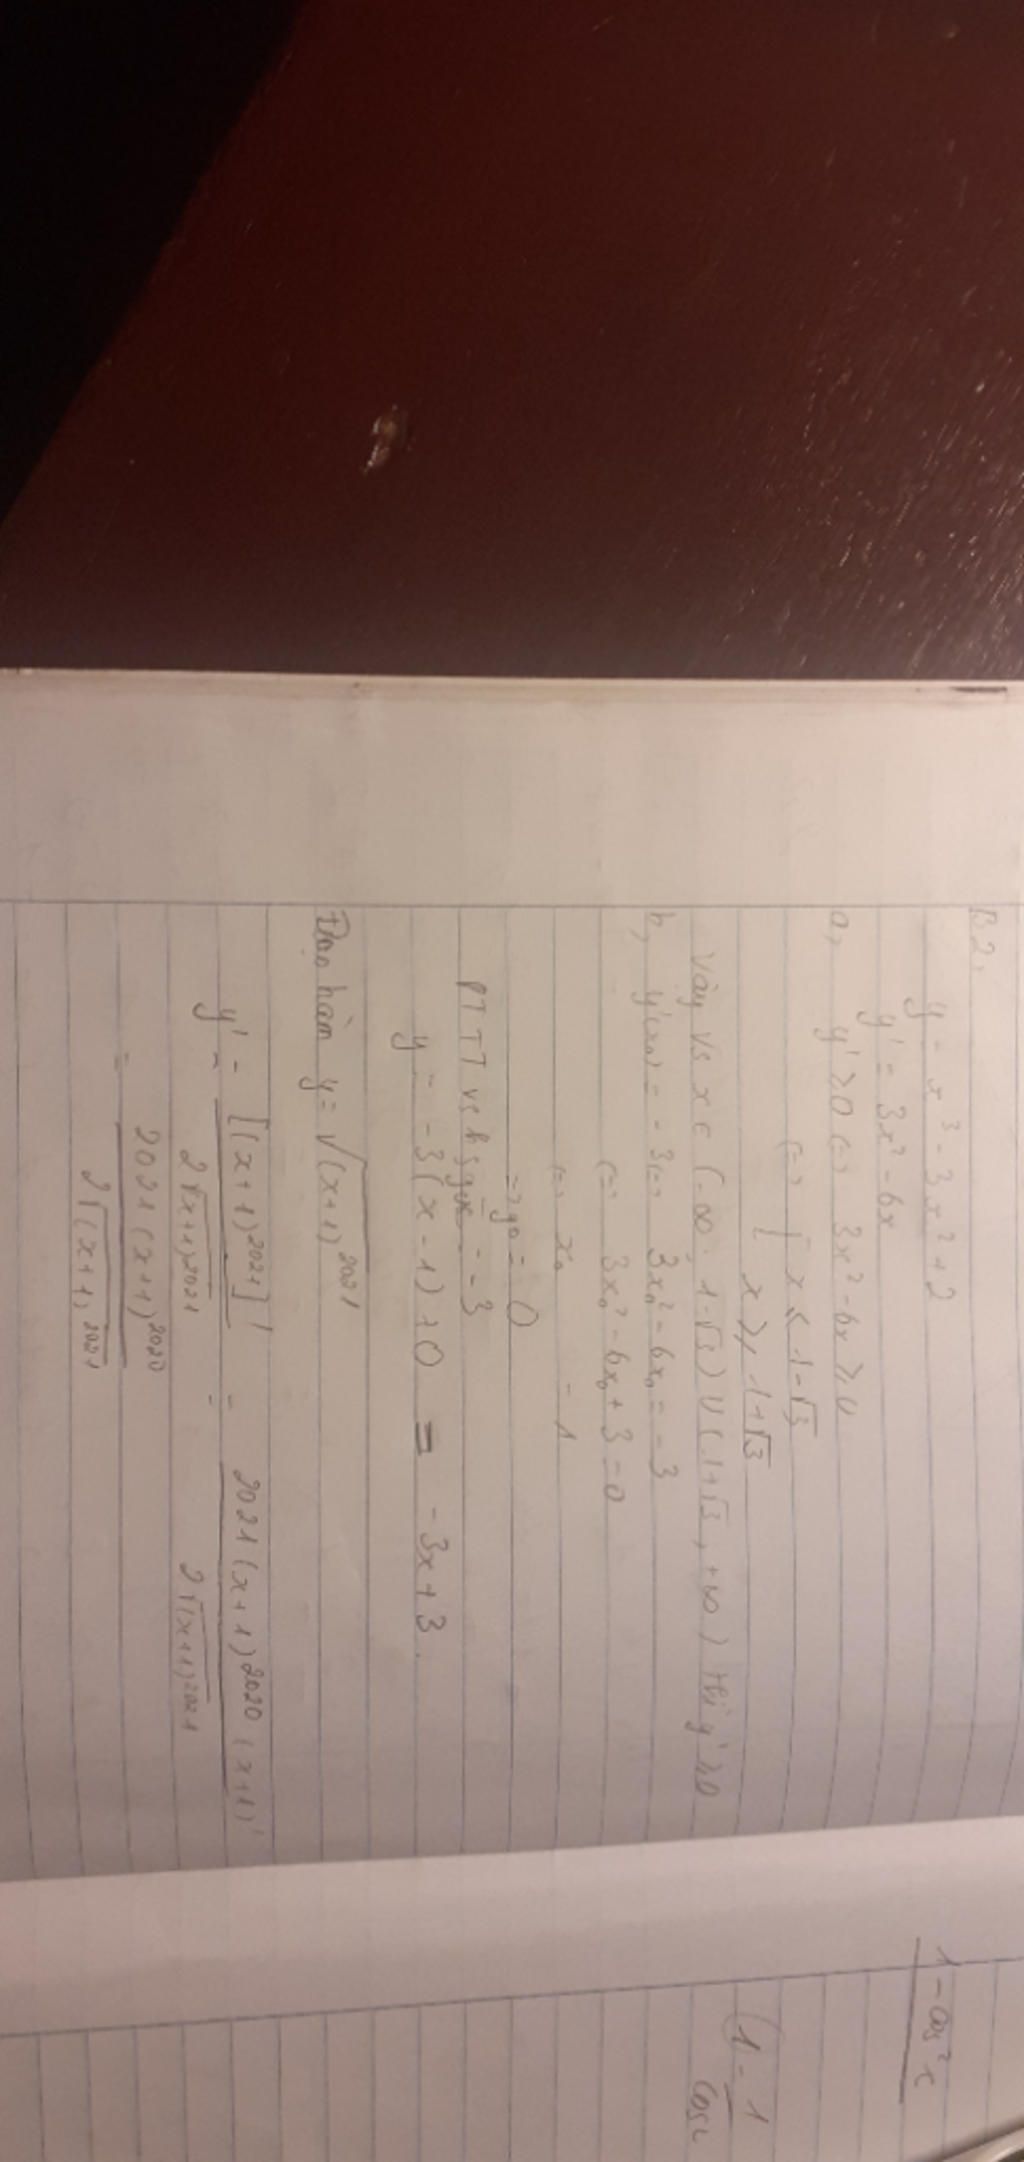 B2,
y = x³ - 3x² + 2
y' = 3x² - 6x
a, y' ≥ 0 (=) 3x² - 6x ≥ 0
(=) [ x < 1-√3
x ≥ 1+√3
Vậy vs x ∈ (-∞ . 1-√3) ∪ (1+√3, +∞) thì y' ≥ 0
b, y'(x₀) = -3 (=) 3x₀² - 6x₀ = -3
(=) 3x₀² - 6x₀ + 3 = 0
(=) x₀ = 1
=> y₀ = 0
PTTT vs hsg = -3
y = -3(x - 1) + 0 = -3x + 3.
Đạo hàm y = √(x+1)²⁰²¹
y' = [(x+1)²⁰²¹]' / 2√(x+1)²⁰²¹ = 2021(x+1)²⁰²⁰ (x+1)' / 2√(x+1)²⁰²¹
= 2021(x+1)²⁰²⁰ / 2√(x+1)²⁰²¹
1 - cos²x
(1 - 1
cos